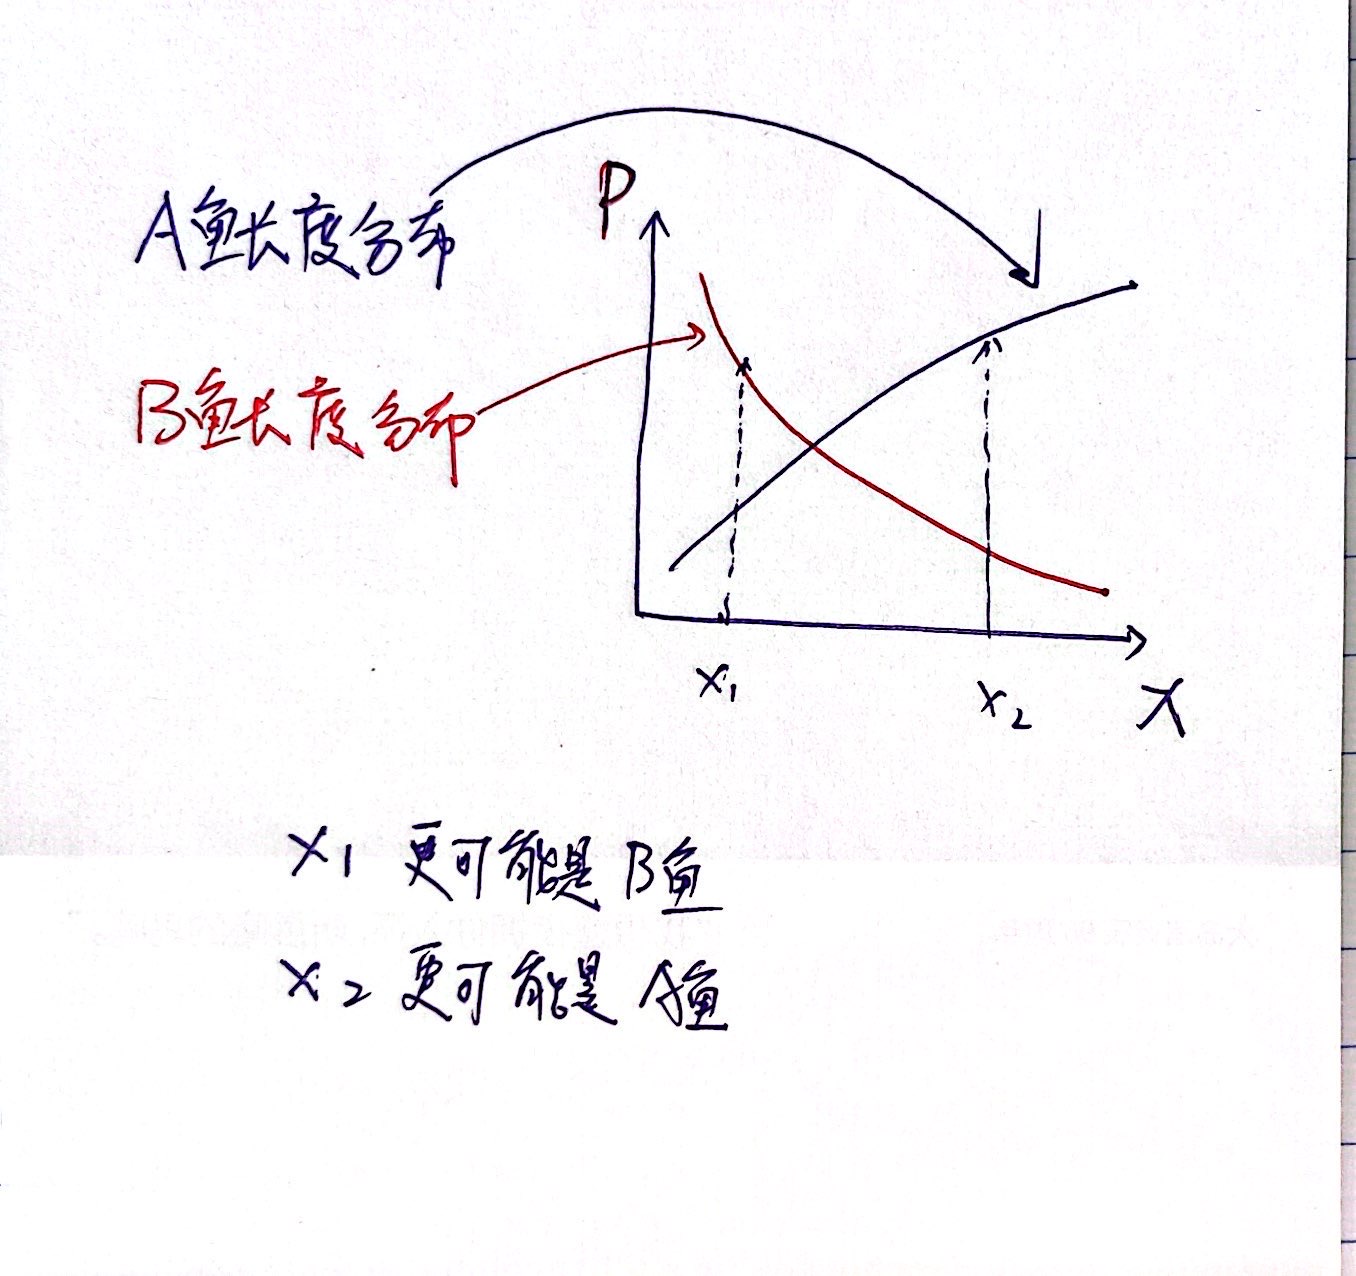 P
A鱼长度分布
B鱼长度分布
x1
x2
X
x1 更可能是 B鱼
x2 更可能是 A鱼